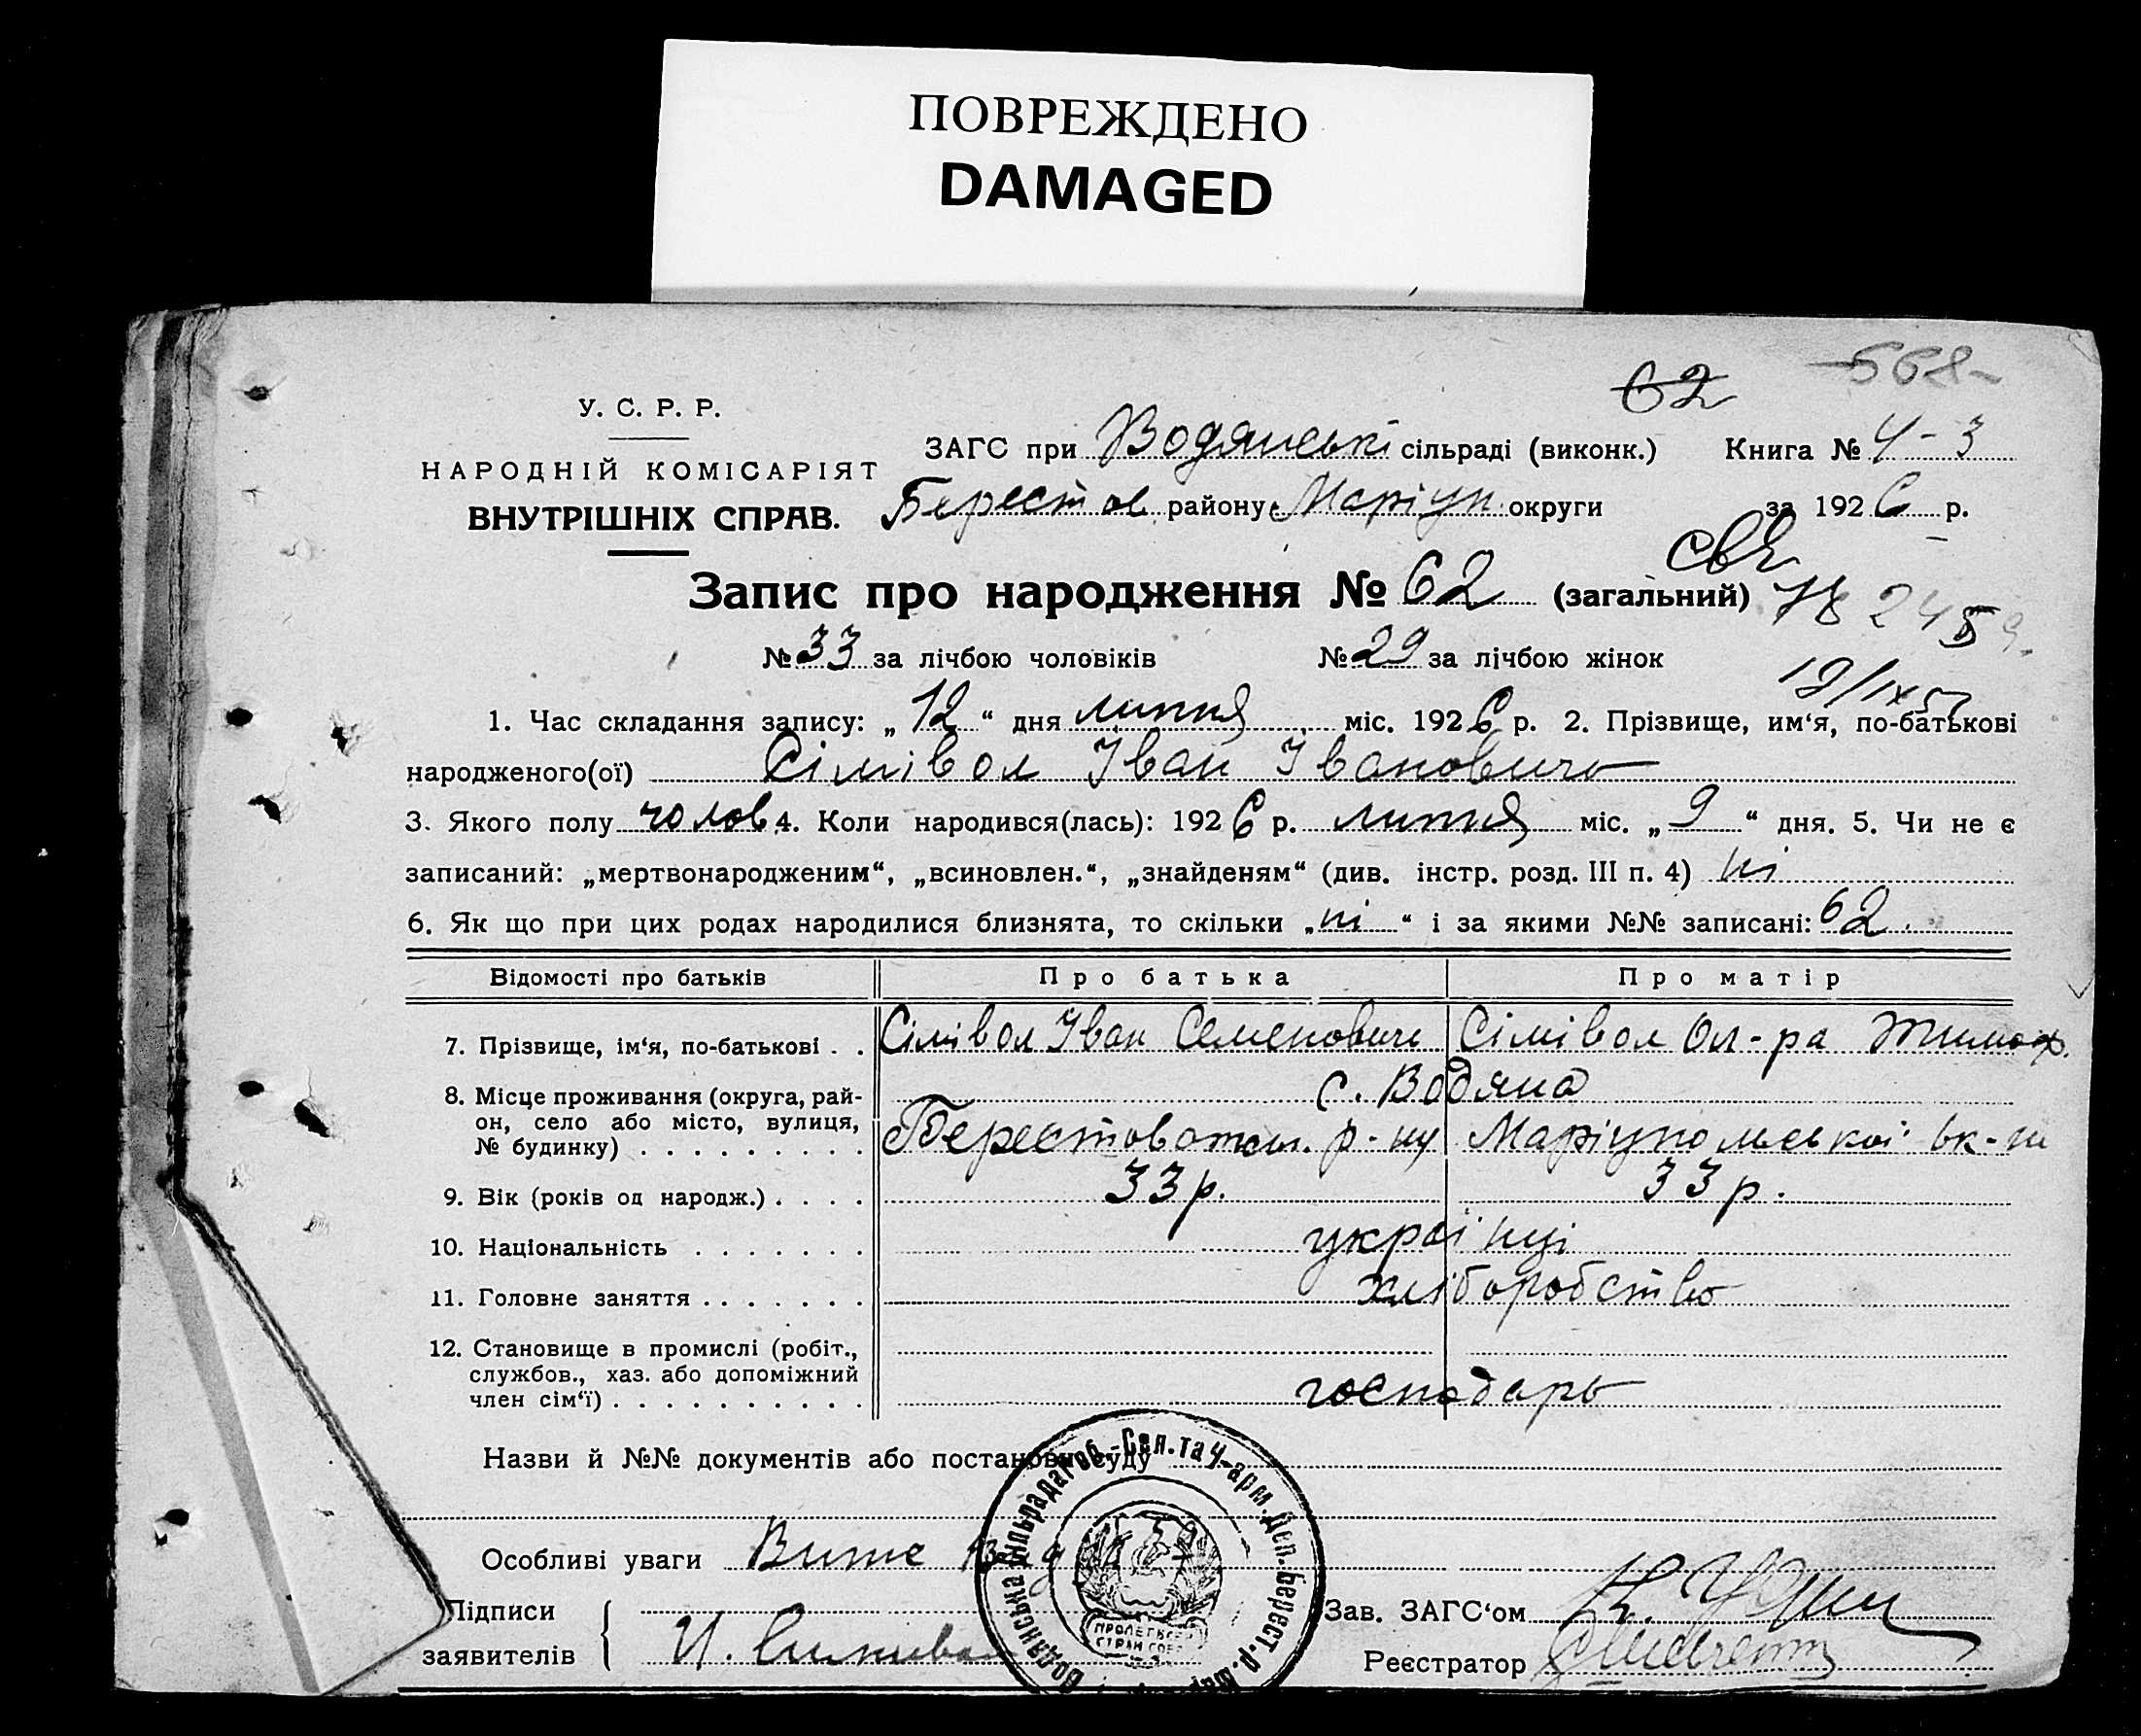 ПОВРЕЖДЕНО
DAMAGED
62 568
У. С. Р. Р.
НАРОДНІЙ КОМІСАРІЯТ
ВНУТРІШНІХ СПРАВ.
ЗАГС при Водянські сільраді (виконк.) Книга № 4-3
Берестов. району Маріуп. округи за 1926 р.
Запис про народження № 62 (загальний)
№ 33 за лічбою чоловіків № 29 за лічбою жінок
12/IX 57
1. Час складання запису: „12“ дня липня міс. 1926 р. 2. Прізвище, им‘я, по-батькові
народженого(ої) Сімівол Іван Івановичь
3. Якого полу чолов 4. Коли народився(лась): 1926 р. липня міс. „9“ дня. 5. Чи не є
записаний: „мертвонародженим“, „всиновлен.“, „знайденям“ (див. інстр. розд. III п. 4) ні
6. Як що при цих родах народилися близнята, то скільки „ні“ і за якими №№ записані: 62.
Відомості про батьків Про батька Про матір
7. Прізвище, ім‘я, по-батькові . . Сімівол Іван Семенович Сімівол Ол-ра Тимоф.
8. Місце проживання (округа, рай-
он, село або місто, вулиця,
№ будинку) . . . . . . . . .
с. Водяна
р-ну Маріупольської ок-ги
9. Вік (років од народж.) . . . . 33 р. 33 р.
10. Національність . . . . . . . українці
11. Головне заняття . . . . . . . хліборобство
12. Становище в промислі (робіт.,
службов., хаз. або допоміжний
член сім‘ї) . . . . . . . . . . господарь
Назви й №№ документів або постанови суду
Особливі уваги
Підписи
заявителів И. Симивол
Зав. ЗАГС‘ом
Реєстратор
Водянська Сільрада Роб.-Сел. та Ч-арм. Деп. Берест. р.